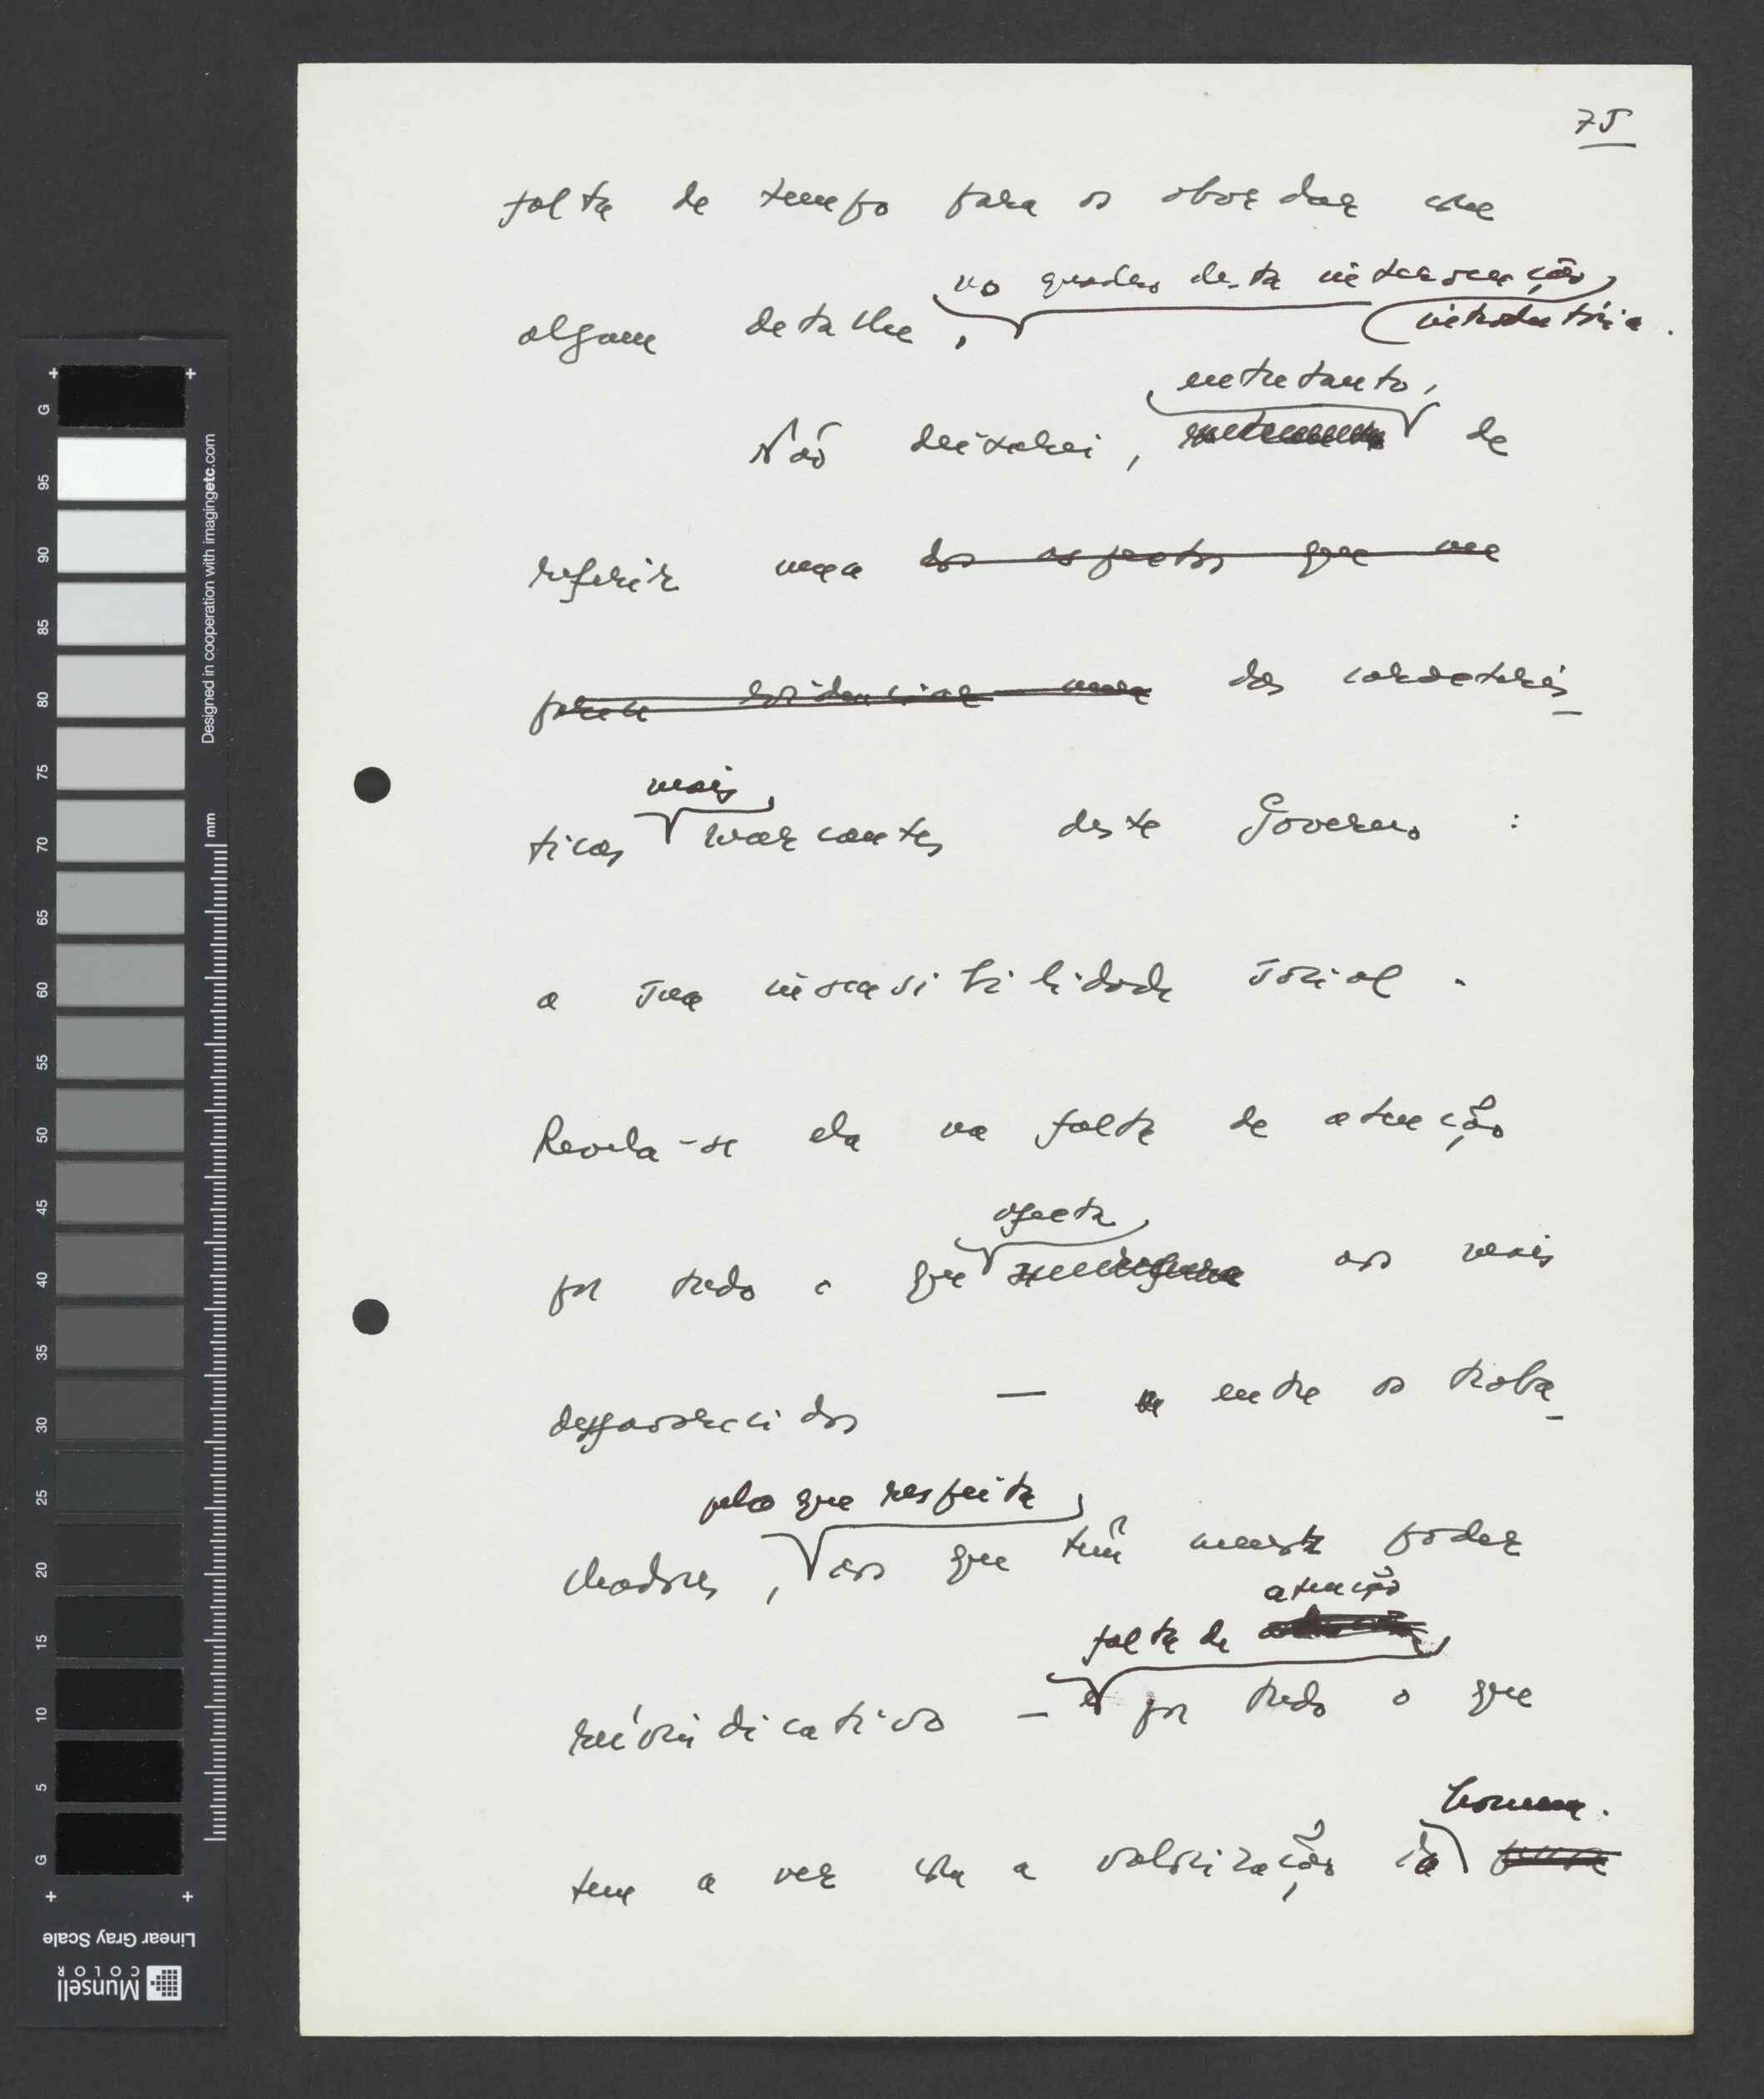 75
falta de tempo para os abordar com
no quadro desta intervenção
algum detalhe,
introdutória.
entretanto,
Não deixarei, de
referir uma dos aspectos que me
parece evidenciar uma das caracterís-
mais
ticas marcantes deste Governo :
a sua insensibilidade social.
Revela-se ela na falta de atenção
afecta
por tudo o que aos mais
desfavorecidos — e entre os traba-
pelo que respeita
lhadores, aos que têm menor poder
atenção
falta de
reivindicativo — e por tudo o que
homem.
tem a ver com a valorização do
G
95
90
85
80
75
70
65
60
55
50
45
40
35
30
25
20
15
10
5
G
mm
Designed in cooperation with imagingetc.com
Linear Gray Scale
Munsell
COLOR